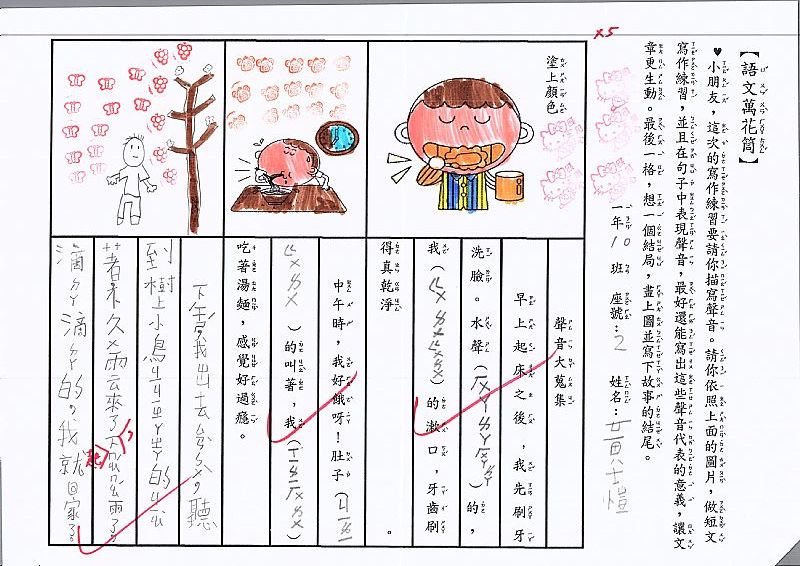 ×5
【語文萬花筒】
♥小朋友,這次的寫作練習要請你描寫聲音。請你依照上面的圖片,做短文
寫作練習,並且在句子中表現聲音,最好還能寫出這些聲音代表的意義,讓文
章更生動。最後一格,想一個結局,畫上圖並寫下故事的結尾。
一年10班 座號:2 姓名:
塗上顏色
聲音大蒐集
早上起床之後,我先刷牙
洗臉。水聲(ㄏㄨㄚㄌㄚㄏㄨㄚ)的,
我()的漱口,牙齒刷
得真乾淨。
中午時,我好餓呀!肚子(
ㄌㄨㄌㄨ)的叫著,我()
吃著湯麵,感覺好過癮。
下午我出去,聽
到樹上小鳥的叫
著,不久雨來了起雨了,
滴ㄉㄚ滴ㄉㄚ的,我就回家了。